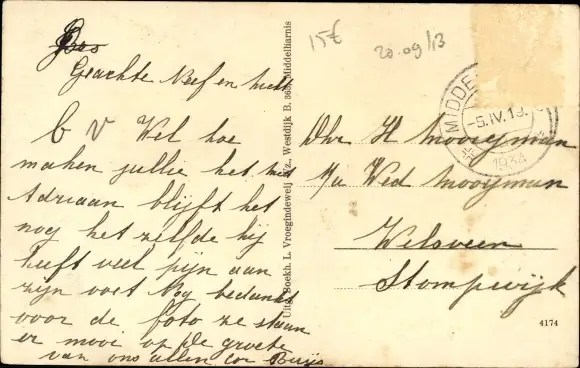 15€
20.09/13
Geachte Neef en nicht
C V Wel hoe
maken jullie het met
Adriaan blijft het
nog het zelfde hij
heeft veel pijn aan
zijn voet Nog bedankt
voor de foto ze staan
er mooi op De groete
van ons allen Cor Buijs
Uitg. Boekh. L. Vroegindeweij Az., Westdijk B. 363, Middelharnis
MIDDE
-5.IV.19.
1934
Dhr H Mooijman
p/a Wed Mooijman
Wilsveen
Stompwijk
4174